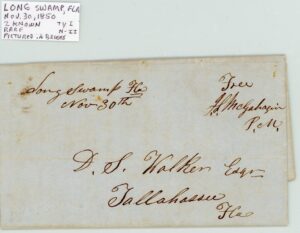 LONG SWAMP, FLA
NOV. 30, 1850
2 KNOWN TY I
RARE N-II
PICTURED
Long Swamp Fla
Nov 30th
Free
McGahagin
P.M.
D. S. Walker Esqr
Tallahassee
Fla